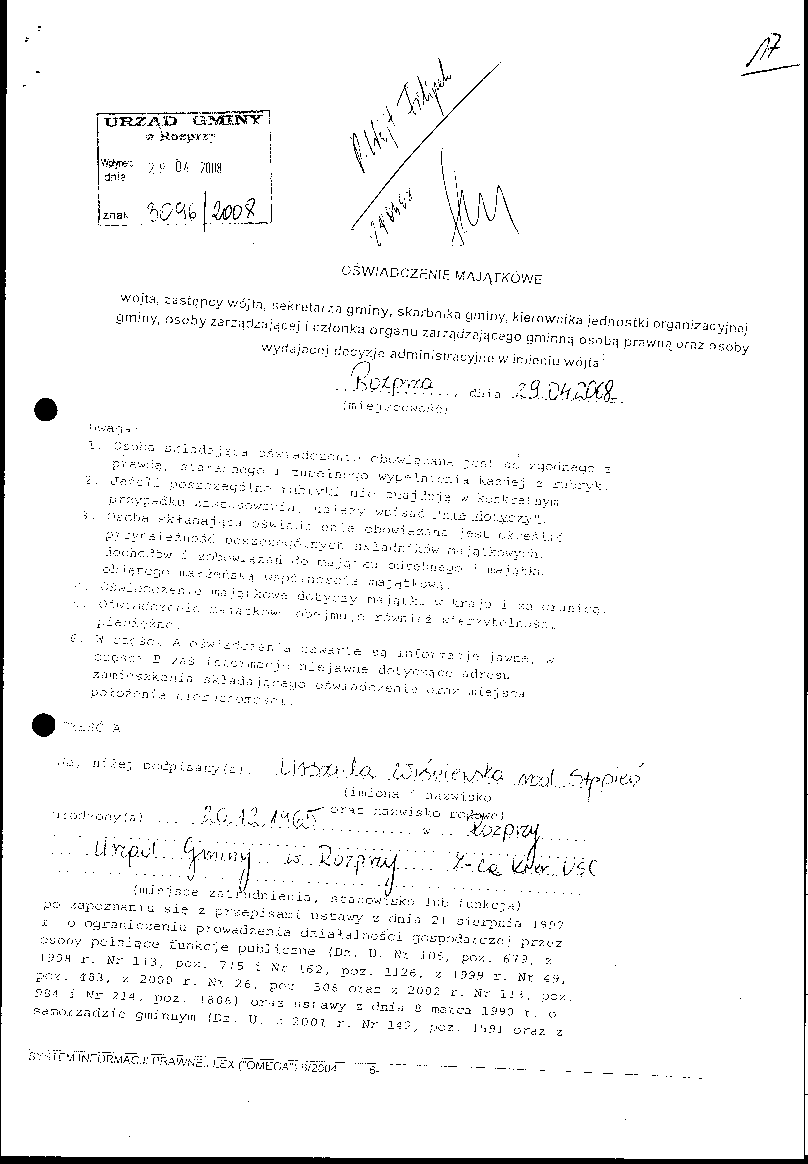 17
URZĄD GMINY
w Rozprzy
Wpłynęło
dnia 29 04 2008
znak 3096/2008
OŚWIADCZENIE MAJĄTKOWE
wójta, zastępcy wójta, sekretarza gminy, skarbnika gminy, kierownika jednostki organizacyjnej
gminy, osoby zarządzającej i członka organu zarządzającego gminną osobą prawną oraz osoby
wydającej decyzje administracyjne w imieniu wójta
Rozprza, dnia 29.04.2008
(miejscowość)
Uwaga:
1. Osoba składająca oświadczenie obowiązana jest do zgodnego z
prawdą, starannego i zupełnego wypełnienia każdej z rubryk.
2. Jeżeli poszczególne rubryki nie znajdują w konkretnym
przypadku zastosowania, należy wpisać "nie dotyczy".
3. Osoba składająca oświadczenie obowiązana jest określić
przynależność poszczególnych składników majątkowych,
dochodów i zobowiązań do majątku odrębnego i majątku
objętego małżeńską wspólnością majątkową.
4. Oświadczenie majątkowe dotyczy majątku w kraju i za granicą.
5. Oświadczenie majątkowe obejmuje również wierzytelności
pieniężne.
6. W części A oświadczenia zawarte są informacje jawne, w
części B zaś informacje niejawne dotyczące adresu
zamieszkania składającego oświadczenie oraz miejsca
położenia nieruchomości.
CZĘŚĆ A
Ja, niżej podpisany(a), Urszula Wiśniewska
(imiona i nazwisko
oraz nazwisko rodowe)
urodzony(a) 20.12.1965 w Rozprzy
Urząd Gminy w Rozprzy Z-ca Kier. USC
(miejsce zatrudnienia, stanowisko lub funkcja)
po zapoznaniu się z przepisami ustawy z dnia 21 sierpnia 1997
r. o ograniczeniu prowadzenia działalności gospodarczej przez
osoby pełniące funkcje publiczne (Dz. U. Nr 106, poz. 679, z
1998 r. Nr 113, poz. 715 i Nr 162, poz. 1126, z 1999 r. Nr 49,
poz. 483, z 2000 r. Nr 26, poz. 306 oraz z 2002 r. Nr 113, poz.
984 i Nr 214, poz. 1806) oraz ustawy z dnia 8 marca 1990 r. o
samorządzie gminnym (Dz. U. z 2001 r. Nr 142, poz. 1591 oraz z
SYSTEM INFORMACJI PRAWNEJ LEX ("OMEGA") 6/2004 -6-